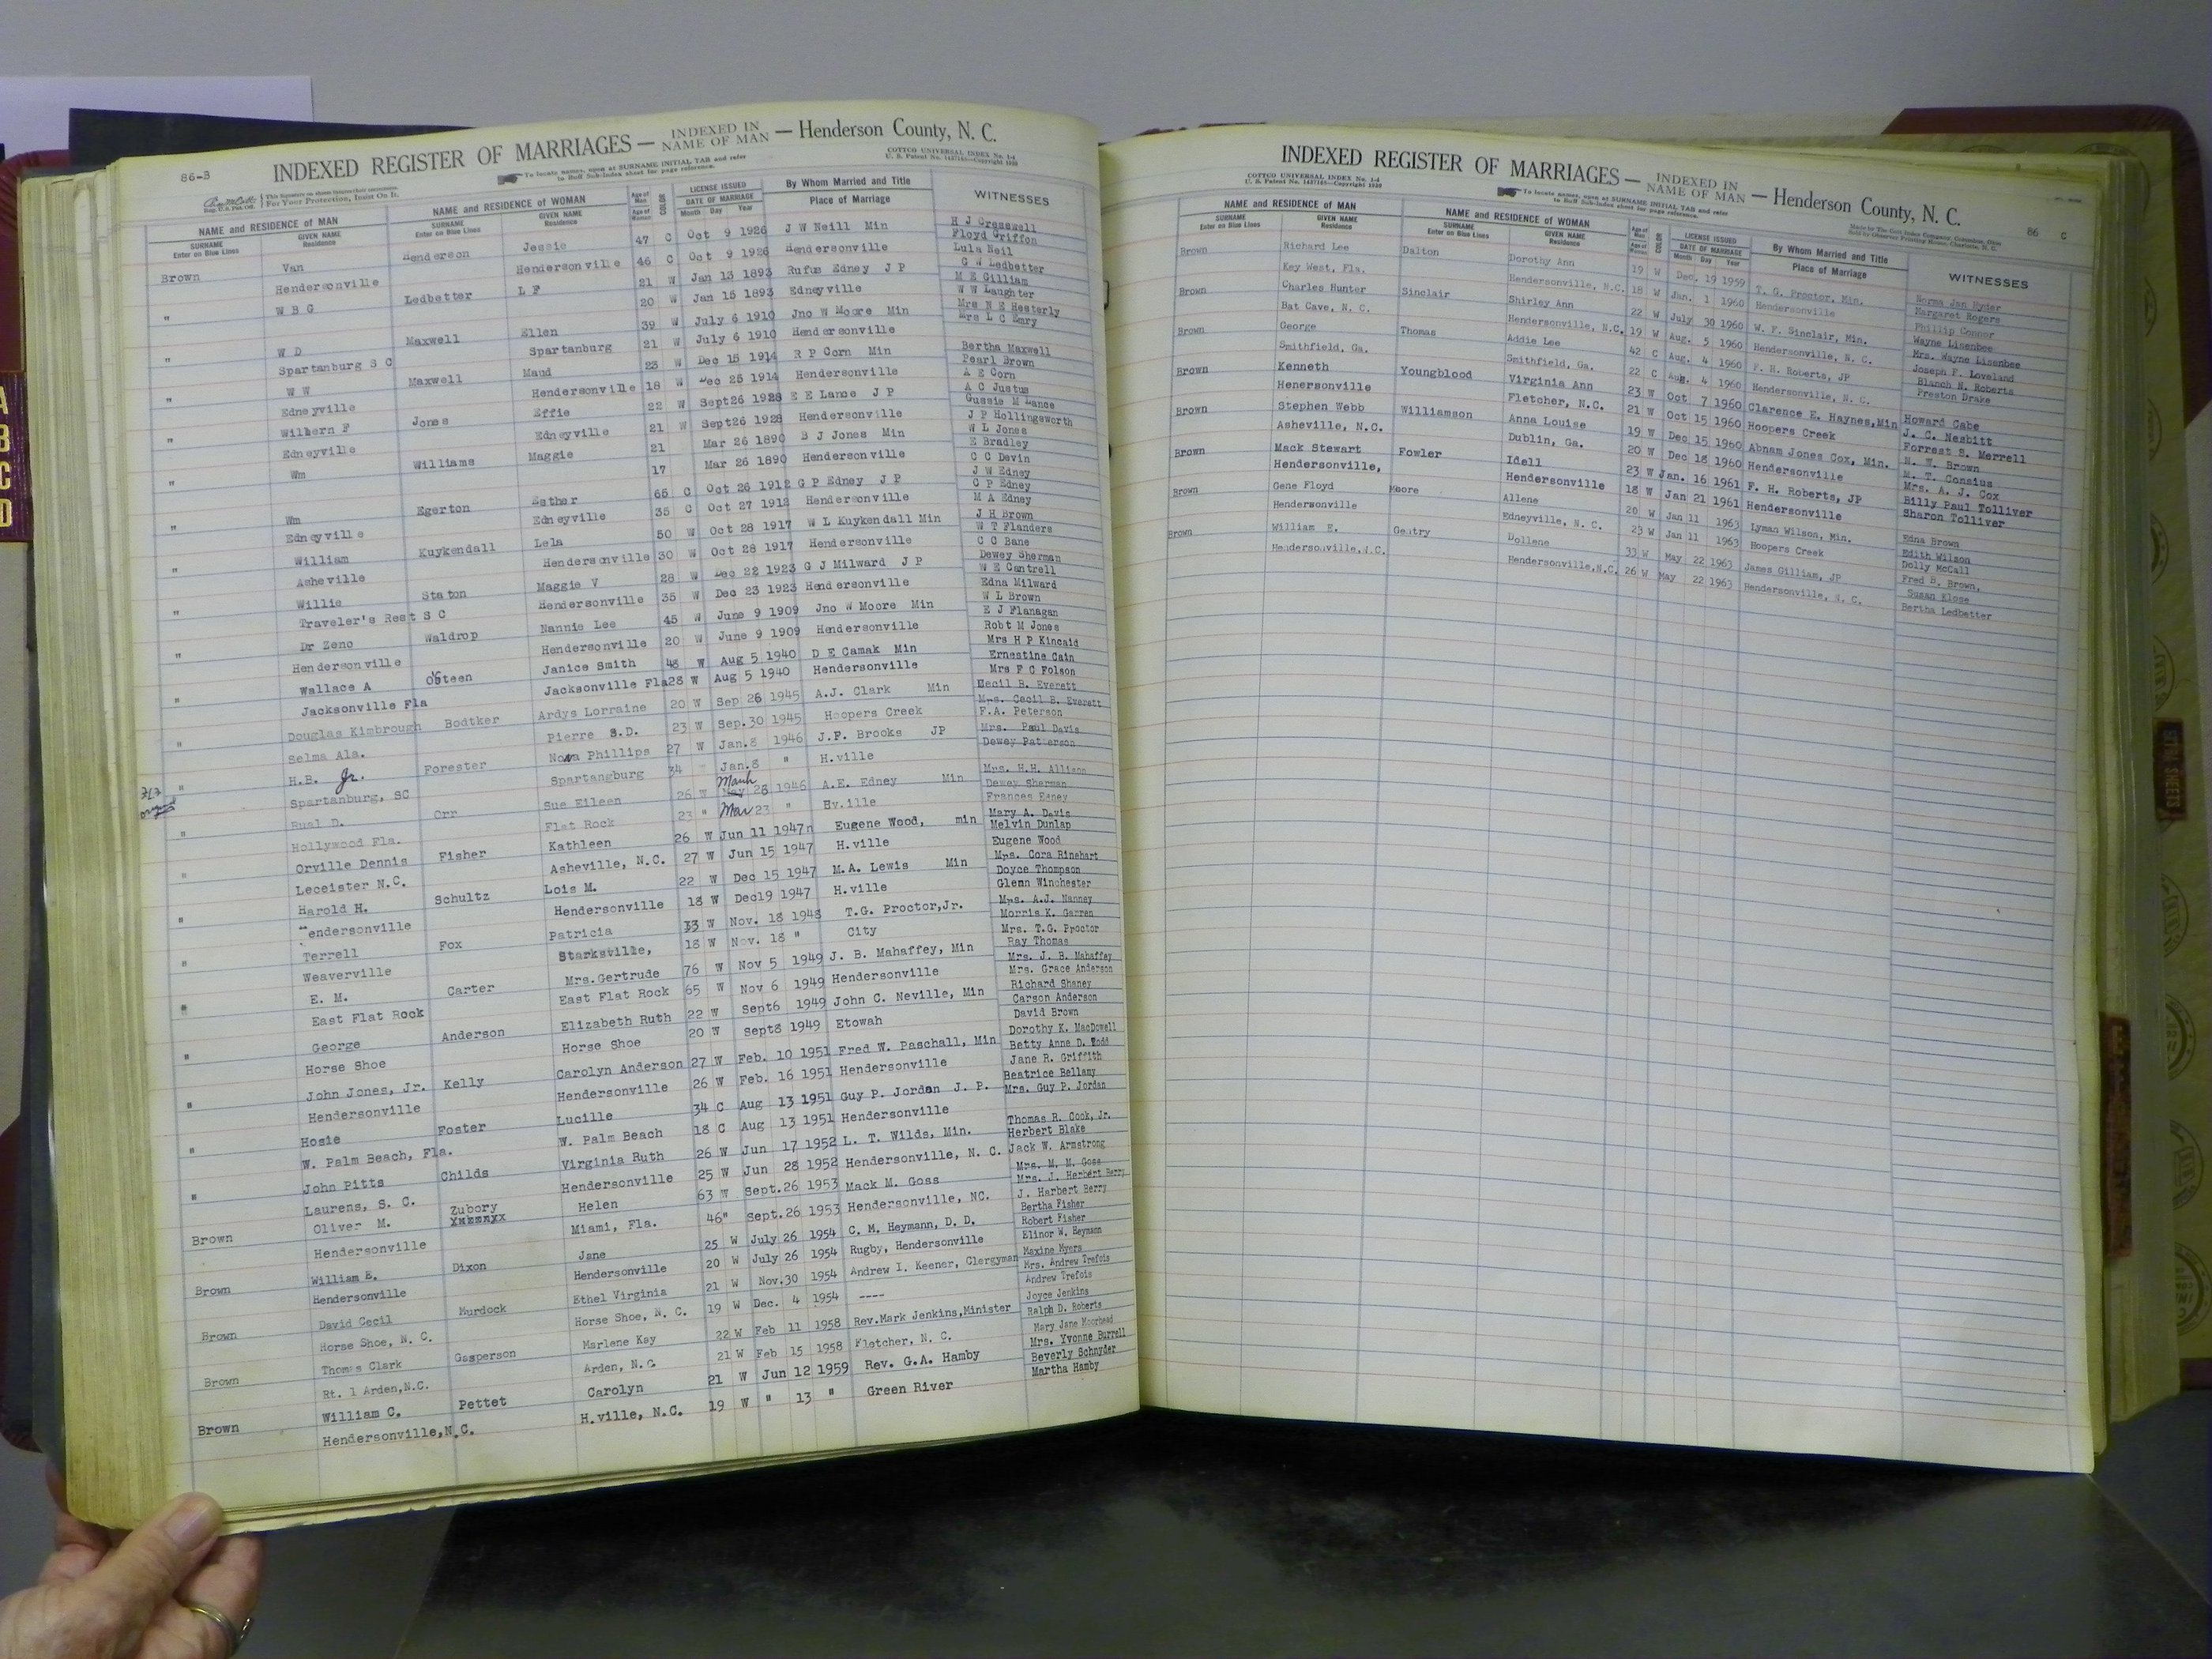 86-B
INDEXED REGISTER OF MARRIAGES — INDEXED IN NAME OF MAN — Henderson County, N. C.
To locate names, open at SURNAME INITIAL TAB and refer to Buff Sub-Index sheet for page reference.
COTTCO UNIVERSAL INDEX No. 1-4
For Your Protection, Insist On It.
NAME and RESIDENCE of MAN NAME and RESIDENCE of WOMAN Age of Man COLOR LICENSE ISSUED By Whom Married and Title WITNESSES
SURNAME Enter on Blue Lines GIVEN NAME Residence SURNAME Enter on Blue Lines GIVEN NAME Residence Age of Woman DATE OF MARRIAGE Month Day Year Place of Marriage
Brown Van Henderson Jessie 47 C Oct 9 1926 J W Neill Min H J Gresswell
Floyd Griffon
Hendersonville Hendersonville 46 C Oct 9 1926 Hendersonville Lula Neil
" W B G Ledbetter L F 21 W Jan 13 1893 Rufus Edney J P G W Ledbetter
M E Gilliam
20 W Jan 15 1893 Edneyville W W Laughter
" W D Maxwell Ellen 39 W July 6 1910 Jno W Moore Min Mrs N E Hesterly
Mrs L C Emry
Spartanburg S C Spartanburg 21 W July 6 1910 Hendersonville
" W W Maxwell Maud 23 W Dec 15 1914 R P Corn Min Bertha Maxwell
Pearl Brown
Edneyville Hendersonville 18 W Dec 25 1914 Hendersonville A E Corn
" Wilbern F Jones Effie 22 W Sept 26 1928 E E Lance J P A C Justus
Gussie M Lance
Edneyville Edneyville 21 W Sept 26 1928 Hendersonville J P Hollingsworth
" Wm Williams Maggie 21 Mar 26 1890 B J Jones Min W L Jones
E Bradley
17 Mar 26 1890 Hendersonville C C Devin
" Wm Egerton Esther 65 C Oct 26 1912 G P Edney J P J W Edney
C P Edney
Edneyville Edneyville 35 C Oct 27 1912 Hendersonville M A Edney
" William Kuykendall Lela 50 W Oct 28 1917 W L Kuykendall Min J H Brown
W T Flanders
Asheville Hendersonville 30 W Oct 28 1917 Hendersonville C C Bane
" Willie Staton Maggie V 28 W Dec 22 1923 G J Milward J P Dewey Sherman
W E Cantrell
Traveler's Rest S C Hendersonville 35 W Dec 23 1923 Hendersonville Edna Milward
" Dr Zeno Waldrop Nannie Lee 45 W June 9 1909 Jno W Moore Min W L Brown
E J Flanagan
Hendersonville Hendersonville 20 W June 9 1909 Hendersonville Robt M Jones
" Wallace A Osteen Janice Smith 48 W Aug 5 1940 D E Camak Min Mrs H P Kincaid
Ernestine Cain
Jacksonville Fla Jacksonville Fla 28 W Aug 5 1940 Hendersonville Mrs F C Folson
" Douglas Kimbrough Bodtker Ardys Lorraine 20 W Sep 26 1945 A.J. Clark Min Cecil B. Everett
Mrs. Cecil B. Everett
Selma Ala. Pierre S.D. 23 W Sep.30 1945 Hoopers Creek F.A. Peterson
" H.B. Jr. Forester Nova Phillips 27 W Jan.8 1946 J.F. Brooks JP Mrs. Paul Davis
Dewey Patterson
Spartanburg, SC Spartangburg 34 " Jan.8 " H.ville
" Bual D. Orr Sue Eileen 26 W March 28 1946 A.E. Edney Min Mrs. H.H. Allison
Dewey Sherman
Hollywood Fla. Flat Rock 23 " Mar 23 " Hv.ille Frances Edney
" Orville Dennis Fisher Kathleen 26 W Jun 11 1947n Eugene Wood, min Mary A. Davis
Melvin Dunlap
Leceister N.C. Asheville, N.C. 27 W Jun 15 1947 H.ville Eugene Wood
" Harold H. Schultz Lois M. 22 W Dec 15 1947 M.A. Lewis Min Mrs. Cora Rinehart
Doyce Thompson
Hendersonville Hendersonville 18 W Dec19 1947 H.ville Glenn Winchester
" Terrell Fox Patricia 33 W Nov. 18 1948 T.G. Proctor,Jr. Mrs. A.J. Nanney
Morris K. Garren
Weaverville Starksville, 18 W Nov. 18 " City Mrs. T.G. Proctor
" E. M. Carter Mrs.Gertrude 76 W Nov 5 1949 J. B. Mahaffey, Min Ray Thomas
Mrs. J. B. Mahaffey
East Flat Rock East Flat Rock 65 W Nov 6 1949 Hendersonville Mrs. Grace Anderson
" George Anderson Elizabeth Ruth 22 W Sept6 1949 John C. Neville, Min Richard Shaney
Carson Anderson
Horse Shoe Horse Shoe 20 W Sept8 1949 Etowah David Brown
" John Jones, Jr. Kelly Carolyn Anderson 27 W Feb. 10 1951 Fred W. Paschall, Min Dorothy K. MacDowell
Betty Anne D. Todd
Hendersonville Hendersonville 26 W Feb. 16 1951 Hendersonville Jane R. Griffith
" Hosie Foster Lucille 34 C Aug 13 1951 Guy P. Jordan J. P. Beatrice Bellamy
Mrs. Guy P. Jordan
W. Palm Beach, Fla. W. Palm Beach 18 C Aug 13 1951 Hendersonville
" John Pitts Childs Virginia Ruth 26 W Jun 17 1952 L. T. Wilds, Min. Thomas R. Cook, Jr.
Herbert Blake
Laurens, S. C. Hendersonville 25 W Jun 28 1952 Hendersonville, N. C. Jack W. Armstrong
Brown Oliver M. Zubory Helen 63 W Sept.26 1953 Mack M. Goss Mrs. M. M. Goss
Mrs. J. Herbert Berry
Hendersonville Miami, Fla. 46" Sept.26 1953 Hendersonville, NC. J. Harbert Berry
Brown William E. Dixon Jane 25 W July 26 1954 C. M. Heymann, D. D. Bertha Fisher
Robert Fisher
Hendersonville Hendersonville 20 W July 26 1954 Rugby, Hendersonville Elinor W. Heymann
Brown David Cecil Murdock Ethel Virginia 21 W Nov.30 1954 Andrew I. Keener, Clergyman Maxine Myers
Mrs. Andrew Trefois
Horse Shoe, N. C. Horse Shoe, N. C. 19 W Dec. 4 1954 ---- Andrew Trefois
Brown Thomas Clark Gasperson Marlene Kay 22 W Feb 11 1958 Rev.Mark Jenkins,Minister Joyce Jenkins
Ralph D. Roberts
Rt. 1 Arden,N.C. Arden, N.C. 21 W Feb 15 1958 Fletcher, N. C. Mary Jane Moorhead
Brown William C. Pettet Carolyn 21 W Jun 12 1959 Rev. G.A. Hamby Mrs. Yvonne Burrell
Beverly Schnyder
Hendersonville,N.C. H.ville, N.C. 19 W " 13 " Green River Martha Hamby
INDEXED REGISTER OF MARRIAGES — INDEXED IN NAME OF MAN — Henderson County, N. C.
COTTCO UNIVERSAL INDEX No. 1-4
To locate names, open at SURNAME INITIAL TAB and refer to Buff Sub-Index sheet for page reference.
86 C
NAME and RESIDENCE of MAN NAME and RESIDENCE of WOMAN Age of Man COLOR LICENSE ISSUED By Whom Married and Title WITNESSES
SURNAME Enter on Blue Lines GIVEN NAME Residence SURNAME Enter on Blue Lines GIVEN NAME Residence Age of Woman DATE OF MARRIAGE Month Day Year Place of Marriage
Brown Richard Lee Dalton Dorothy Ann 19 W Dec. 19 1959 T. G. Proctor, Min. Norma Jan Ryder
Margaret Rogers
Key West, Fla. Hendersonville, N.C. 18 W Jan. 1 1960 Hendersonville Phillip Connor
Brown Charles Hunter Sinclair Shirley Ann 22 W July 30 1960 W. F. Sinclair, Min. Wayne Lisenbee
Mrs. Wayne Lisenbee
Bat Cave, N. C. Hendersonville, N.C. 19 W Aug. 5 1960 Hendersonville, N. C. Joseph F. Loveland
Brown George Thomas Addie Lee 42 C Aug. 4 1960 F. H. Roberts, JP Blanch H. Roberts
Preston Drake
Smithfield, Ga. Smithfield, Ga. 22 C Aug. 4 1960 Hendersonville, N. C.
Brown Kenneth Youngblood Virginia Ann 23 W Oct 7 1960 Clarence E. Haynes,Min Howard Cabe
J. C. Nesbitt
Henersonville Fletcher, N.C. 21 W Oct 15 1960 Hoopers Creek Forrest S. Merrell
Brown Stephen Webb Williamson Anna Louise 19 W Dec 15 1960 Abnam Jones Cox, Min. N. W. Brown
M. T. Consius
Asheville, N.C. Dublin, Ga. 20 W Dec 18 1960 Hendersonville Mrs. A. J. Cox
Brown Mack Stewart Fowler Idell 23 W Jan. 16 1961 F. H. Roberts, JP Billy Paul Tolliver
Sharon Tolliver
Hendersonville, Hendersonville 18 W Jan 21 1961 Hendersonville
Brown Gene Floyd Moore Allene 20 W Jan 11 1963 Lyman Wilson, Min. Edna Brown
Edith Wilson
Hendersonville Edneyville, N. C. 23 W Jan 11 1963 Hoopers Creek Dolly McCall
Brown William E. Gentry Dollene 33 W May 22 1963 James Gilliam, JP Fred B. Brown,
Susan Klose
Hendersonville,N.C. Hendersonville,N.C. 26 W May 22 1963 Hendersonville, N. C. Bertha Ledbetter